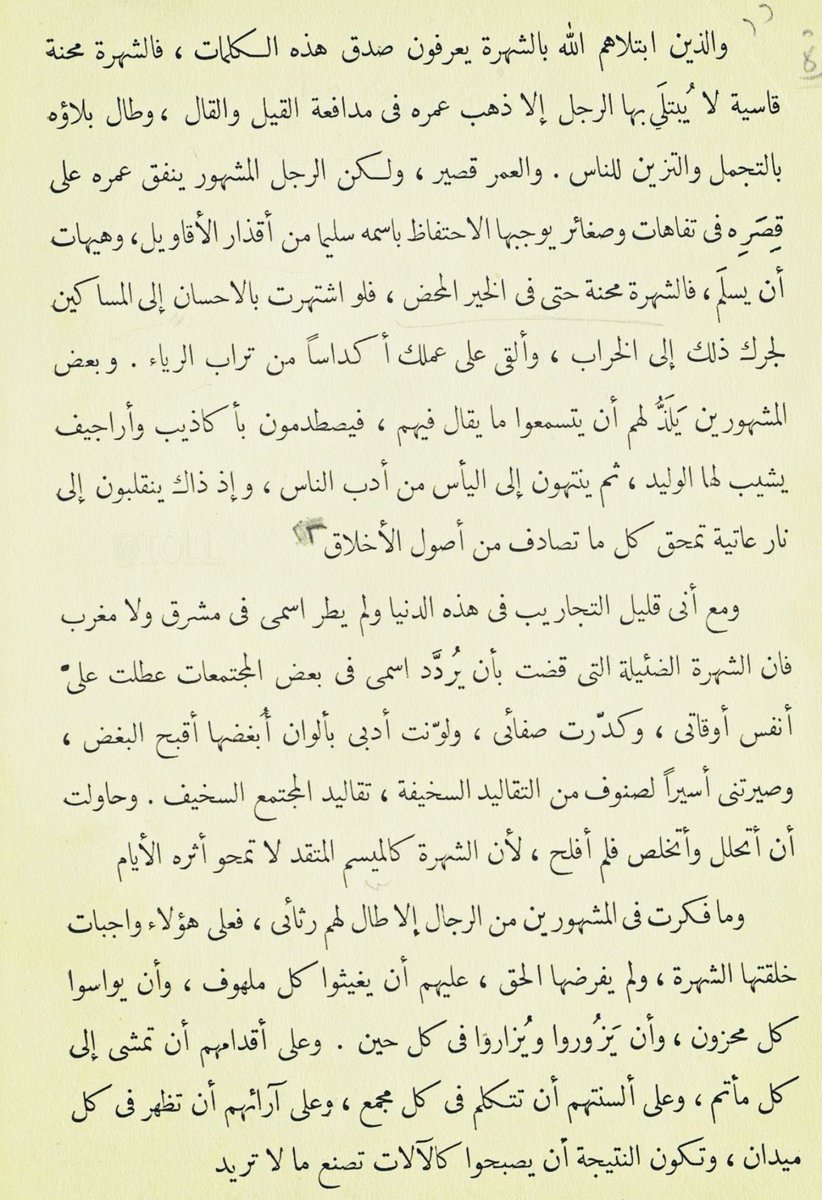 والذين ابتلاهم الله بالشهرة يعرفون صدق هذه الكلمات ، فالشهرة محنة
قاسية لا يُبتلَى بها الرجل إلا ذهب عمره فى مدافعة القيل والقال ، وطال بلاؤه
بالتجمل والتزين للناس . والعمر قصير ، ولكن الرجل المشهور ينفق عمره على
قِصَرِه فى تفاهات وصغائر يوجبها الاحتفاظ باسمه سليما من أقذار الأقاويل، وهيهات
أن يسلَم ، فالشهرة محنة حتى فى الخير المحض ، فلو اشتهرت بالاحسان إلى المساكين
لجرك ذلك إلى الخراب ، وألقى على عملك أكداساً من تراب الرياء . وبعض
المشهورين يَلَذُّ لهم أن يتسمعوا ما يقال فيهم ، فيصطدمون بأكاذيب وأراجيف
يشيب لها الوليد ، ثم ينتهون إلى اليأس من أدب الناس ، وإذ ذاك ينقلبون إلى
نار عاتية تمحق كل ما تصادف من أصول الأخلاق
ومع أنى قليل التجاريب فى هذه الدنيا ولم يطر اسمى فى مشرق ولا مغرب
فان الشهرة الضئيلة التى قضت بأن يُردَّد اسمى فى بعض المجتمعات عطلت علىّ
أنفس أوقاتى ، وكدّرت صفائى ، ولوّنت أدبى بألوان أُبغضها أقبح البغض ،
وصيرتنى أسيراً لصنوف من التقاليد السخيفة ، تقاليد المجتمع السخيف . وحاولت
أن أتحلل وأتخلص فلم أفلح ، لأن الشهرة كالميسم المتقد لا تمحو أثره الأيام
وما فكرت فى المشهورين من الرجال إلا طال لهم رثائى ، فعلى هؤلاء واجبات
خلقتها الشهرة ، ولم يفرضها الحق ، عليهم أن يغيثوا كل ملهوف ، وأن يواسوا
كل محزون ، وأن يَزُوروا ويُزاروا فى كل حين . وعلى أقدامهم أن تمشى إلى
كل مأتم ، وعلى ألسنتهم أن تتكلم فى كل مجمع ، وعلى آرائهم أن تظهر فى كل
ميدان ، وتكون النتيجة أن يصبحوا كالآلات تصنع ما لا تريد